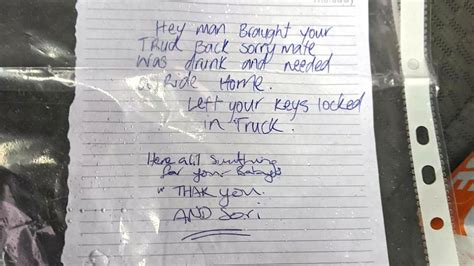 Hey man Brought your
Truck Back sorry mate
was drunk and needed
a Ride Home.
Left your keys locked
in Truck.
Here a lil Sumthing
for your
THAK you.
AND Sori